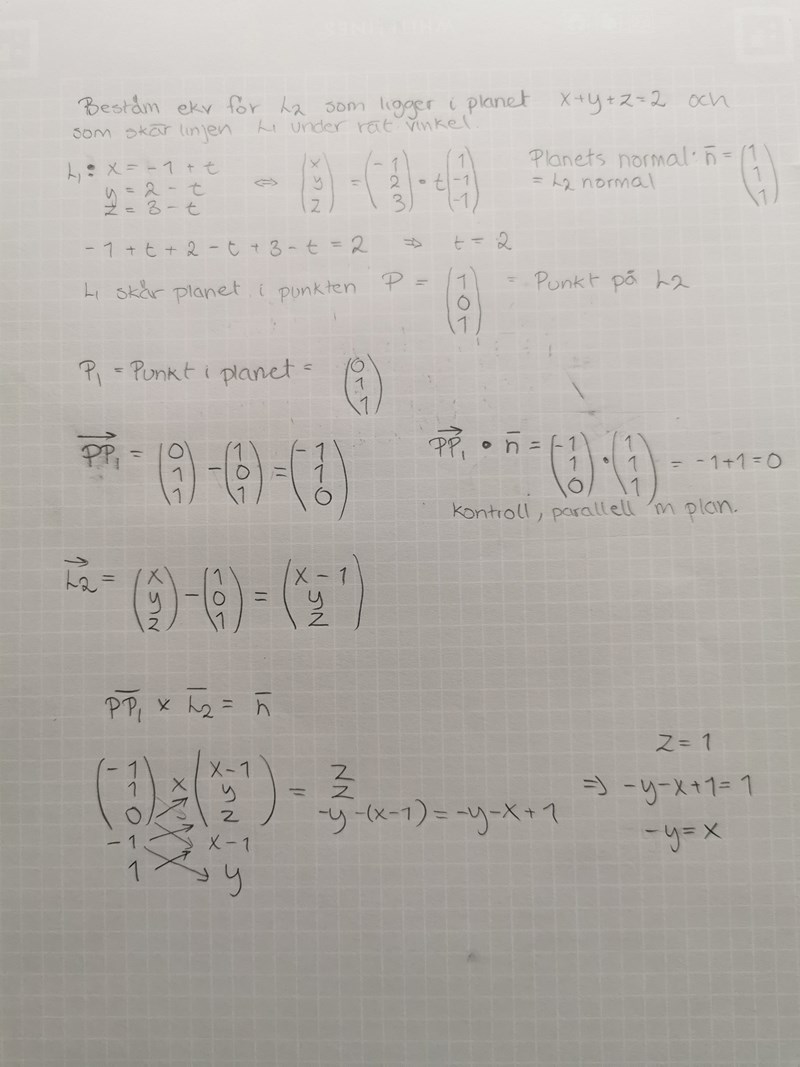 Bestäm ekv för L2 som ligger i planet x+y+z=2 och
som skär linjen L1 under rät vinkel.
L1: x = -1 + t
y = 2 - t
z = 3 - t
⇔ (x y z) = (-1 2 3) • t (1 -1 -1)
Planets normal · n̄ = (1 1 1)
= L2 normal
-1 + t + 2 - t + 3 - t = 2 ⇒ t = 2
L1 skär planet i punkten P = (1 0 1) = Punkt på L2
P1 = Punkt i planet = (0 1 1)
PP1 = (0 1 1) - (1 0 1) = (-1 1 0)
PP1 • n̄ = (-1 1 0) • (1 1 1) = -1+1=0
kontroll, parallell m plan.
L2 = (x y z) - (1 0 1) = (x-1 y z)
PP1 × L2 = n̄
(-1 1 0) × (x-1 y z) = z
z
-y-(x-1) = -y-x+1
-1 x-1
1 y
z = 1
⇒ -y-x+1=1
-y=x